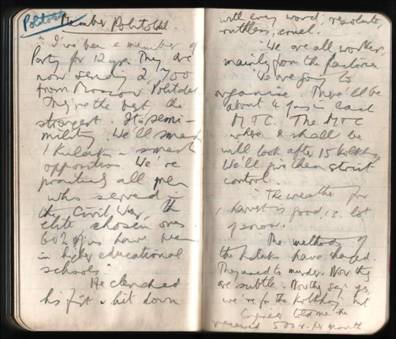 Politotdel
Member Politotdel.
"I've been a member of
Party for 12 yrs. They are
now sending 2,700
from Moscow Politotdel.
They're the best, the
strongest. It's semi-
military. We'll smash
kulaks & smash
opposition. We're
all men
who served in
the Civil War, the
elite, chosen ones.
60% of us have been
in higher educational
schools."
He clenched
his fist & hit down
with every word, resolute,
ruthless, cruel.
"We are all workers,
mainly from the factories.
We're going to
organise. There'll be
about 4 of us in each
M.T.C. The MTC
where I shall be
will look after 15 kolkhoz.
We'll give them strict
control.
"The weather for
harvest is good, a lot
of snow.
"The methods of
the kulaks have changed.
They used to murder. Now they
are subtle. Now they say: yes,
we're for the kolkhoz, but
told me he
received 500 r. per month